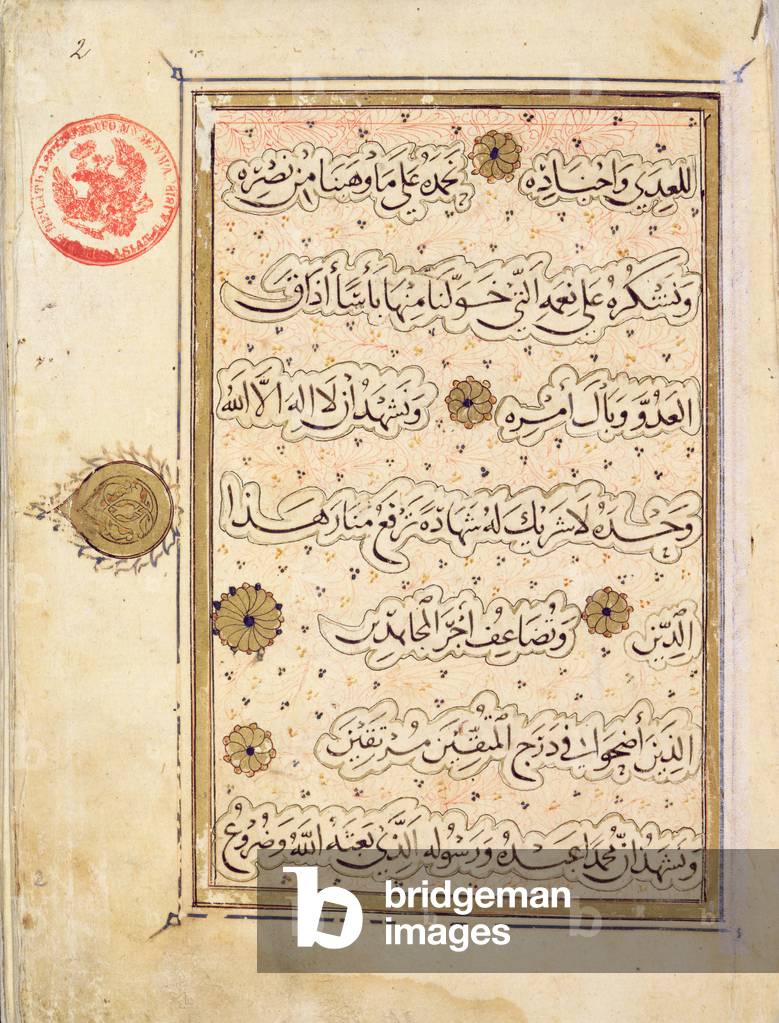 2
للعدى واجناده نحمده على ما وهبنا من نصره
ونشكره على نعمه التي خولنا منها بأسًا أذاق
العدوّ وبال أمره ونشهد ان لا اله الا الله
وحده لا شريك له شهادة ترفع منار هذا
الدين وتضاعف أجر المجاهدين
الذين أضحوا في درج المتقين مرتقين
ونشهد انّ محمدا عبده ورسوله الذي بعثه الله وضروع
b bridgeman
images